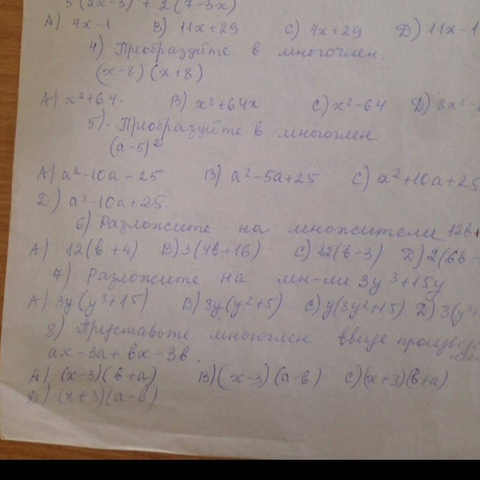 5(2x-3) + 2(7-3x)
A) 4x-1 B) 11x+29 C) 4x+29 D) 11x-1
4) Преобразуйте в многочлен.
(x-8)(x+8)
A) x²+64. B) x²+64x C) x²-64 D) 8x²-
5). Преобразуйте в многочлен
(a-5)²
A) a²-10a-25 B) a²-5a+25 C) a²+10a+25
D) a²-10a+25
6) Разложите на множители 12b+
A) 12(b+4) B) 3(4b+16) C) 12(b-3) D) 2(6b-
7) Разложите на мн-ли 3y³+15y
A) 3y(y³+15) B) 3y(y²+5) C) y(3y²+15) D) 3(y³+
8) Представьте многочлен ввиде произвед
ax-3a+bx-3b.
A) (x-3)(b+a) B) (x-3)(a-b) C) (x+3)(b+a)
D) (x+3)(a-b)